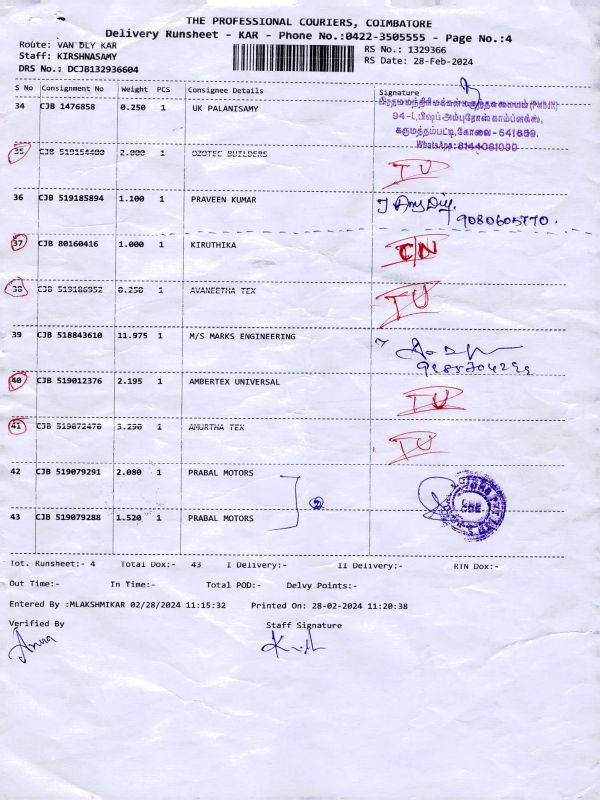 THE PROFESSIONAL COURIERS, COIMBATORE
Delivery Runsheet - KAR - Phone No.:0422-3505555 - Page No.:4
Route: VAN DLY KAR
RS No.: 1329366
Staff: KIRSHNASAMY
RS Date: 28-Feb-2024
DRS No.: DCJB132936604
S No Consignment No Weight PCS Consignee Details Signature
34 CJB 1476858 0.250 1 UK PALANISAMY
94-L,பிஷப் அம்புரோஸ் காம்ப்ளக்ஸ்,
கருமத்தம்பட்டி,கோவை-641659.
WhatsApp:8144081090
35 CJB 519154400 2.000 1 OZOTEC BUILDERS
36 CJB 519185894 1.100 1 PRAVEEN KUMAR
9080605770.
37 CJB 80160416 1.000 1 KIRUTHIKA
38 CJB 519186952 0.250 1 AVANEETHA TEX
39 CJB 518843610 11.975 1 M/S MARKS ENGINEERING
40 CJB 519012376 2.195 1 AMBERTEX UNIVERSAL
41 CJB 519072470 3.290 1 AMURTHA TEX
42 CJB 519079291 2.080 1 PRABAL MOTORS
2
43 CJB 519079288 1.520 1 PRABAL MOTORS
Tot. Runsheet:- 4 Total Dox:- 43 I Delivery:- II Delivery:- RTN Dox:-
Out Time:- In Time:- Total POD:- Delvy Points:-
Entered By :MLAKSHMIKAR 02/28/2024 11:15:32 Printed On: 28-02-2024 11:20:38
Verified By Staff Signature